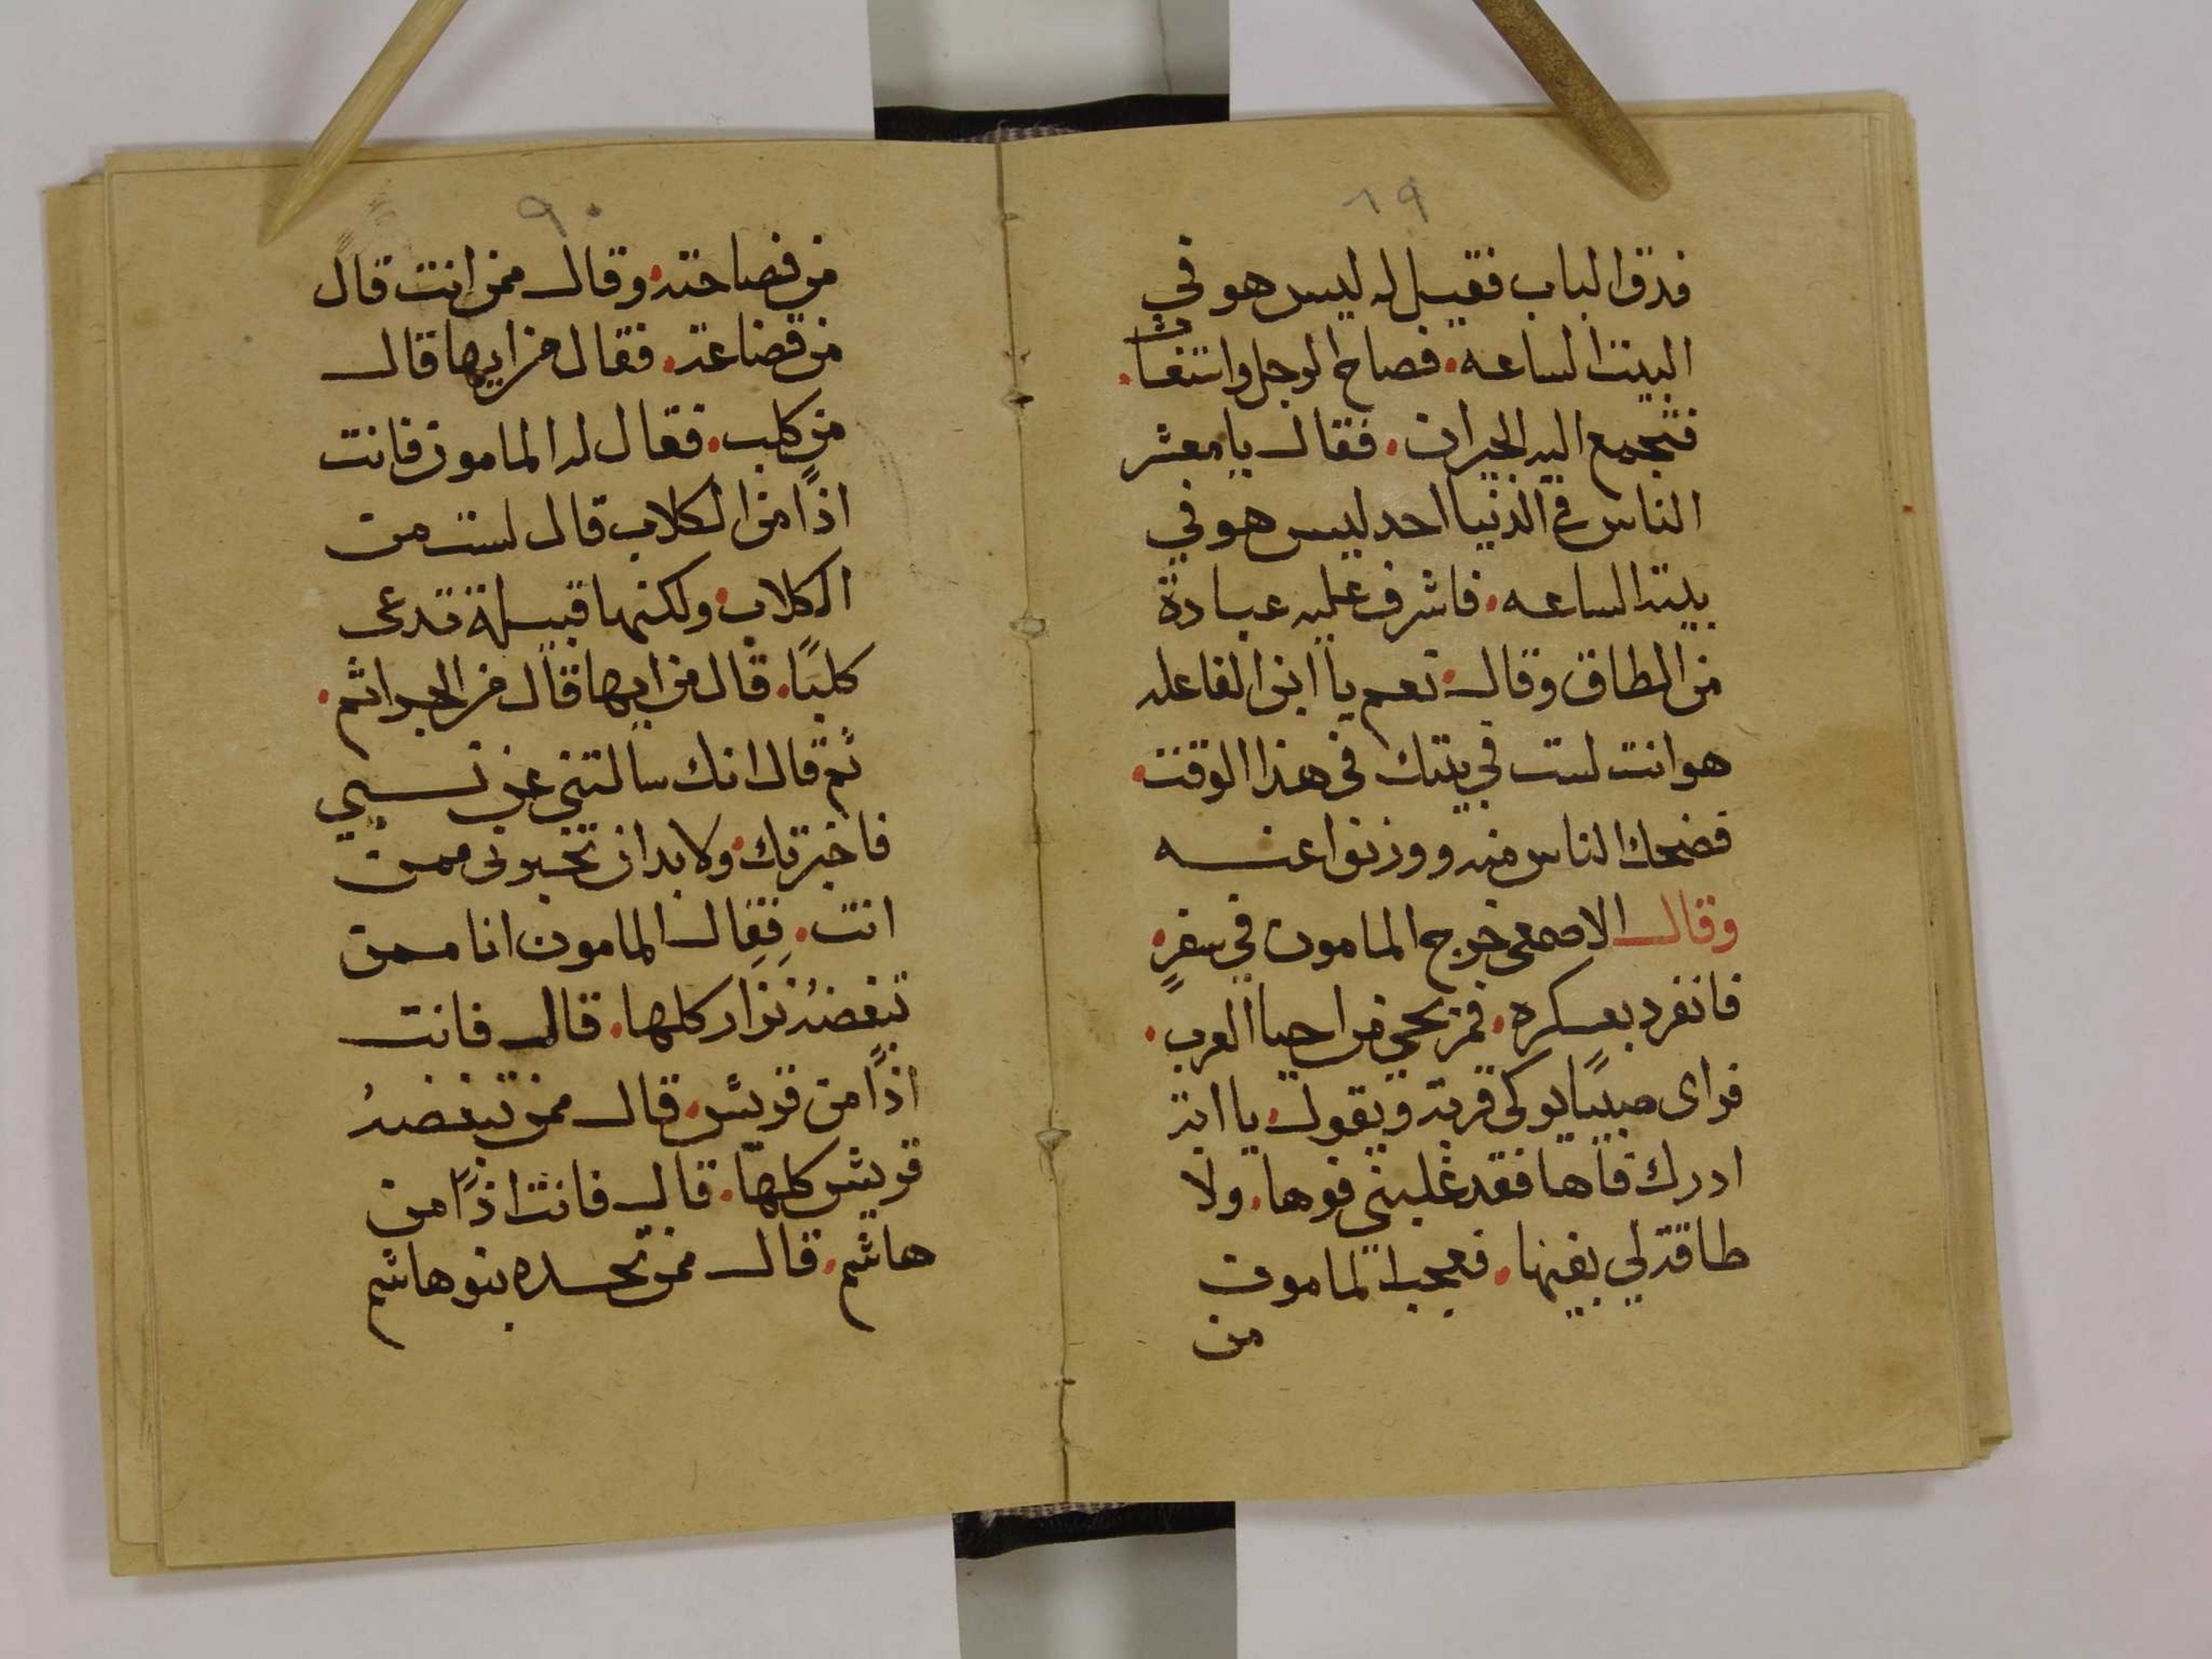 ٨٩
فدق الباب فقيل له ليس هو في
البيت الساعه. فصاح الرجل واستغاث.
فتجمع اليه الجيران. فقال يا معشر
الناس في الدنيا احد ليس هو في
بيته الساعه. فاشرف عليه عبادة
من الطاق وقال. نعم يا ابن الفاعله
هو انت لست في بيتك في هذا الوقت.
فضحك الناس منه ووزنوا عنه
وقال الاصمعي خرج المامون في سفرٍ.
فانفرد بعسكره. فمر بحي من احيا العرب.
فراى صبيًا يوكي قربة ويقول. يا ابة
ادرك فاها فقد غلبني فوها. ولا
طاقة لي بفيها. فعجب المامون
من
٩٠
من فصاحته. وقال ممن انت قال
من قضاعة. فقال من ايها قال
من كلب. فقال له المامون فانت
اذًا من الكلاب قال لست من
الكلاب. ولكنها قبيلة تدعى
كلبًا. قال من ايها قال من الجراثم.
ثم قال انك سالتني عن نسبي
فاخبرتك. ولا بد ان تخبرني ممن
انت. فقال المامون انا ممن
تبغضه نزار كلها. قال فانت
اذًا من قريش. قال ممن تبغضه
قريش كلها. قال فانت اذًا من
هاشم. قال ممن تحسده بنو هاشم